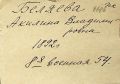 Беляева
Акилина Владими-
ровна
1892г
8я военная 54